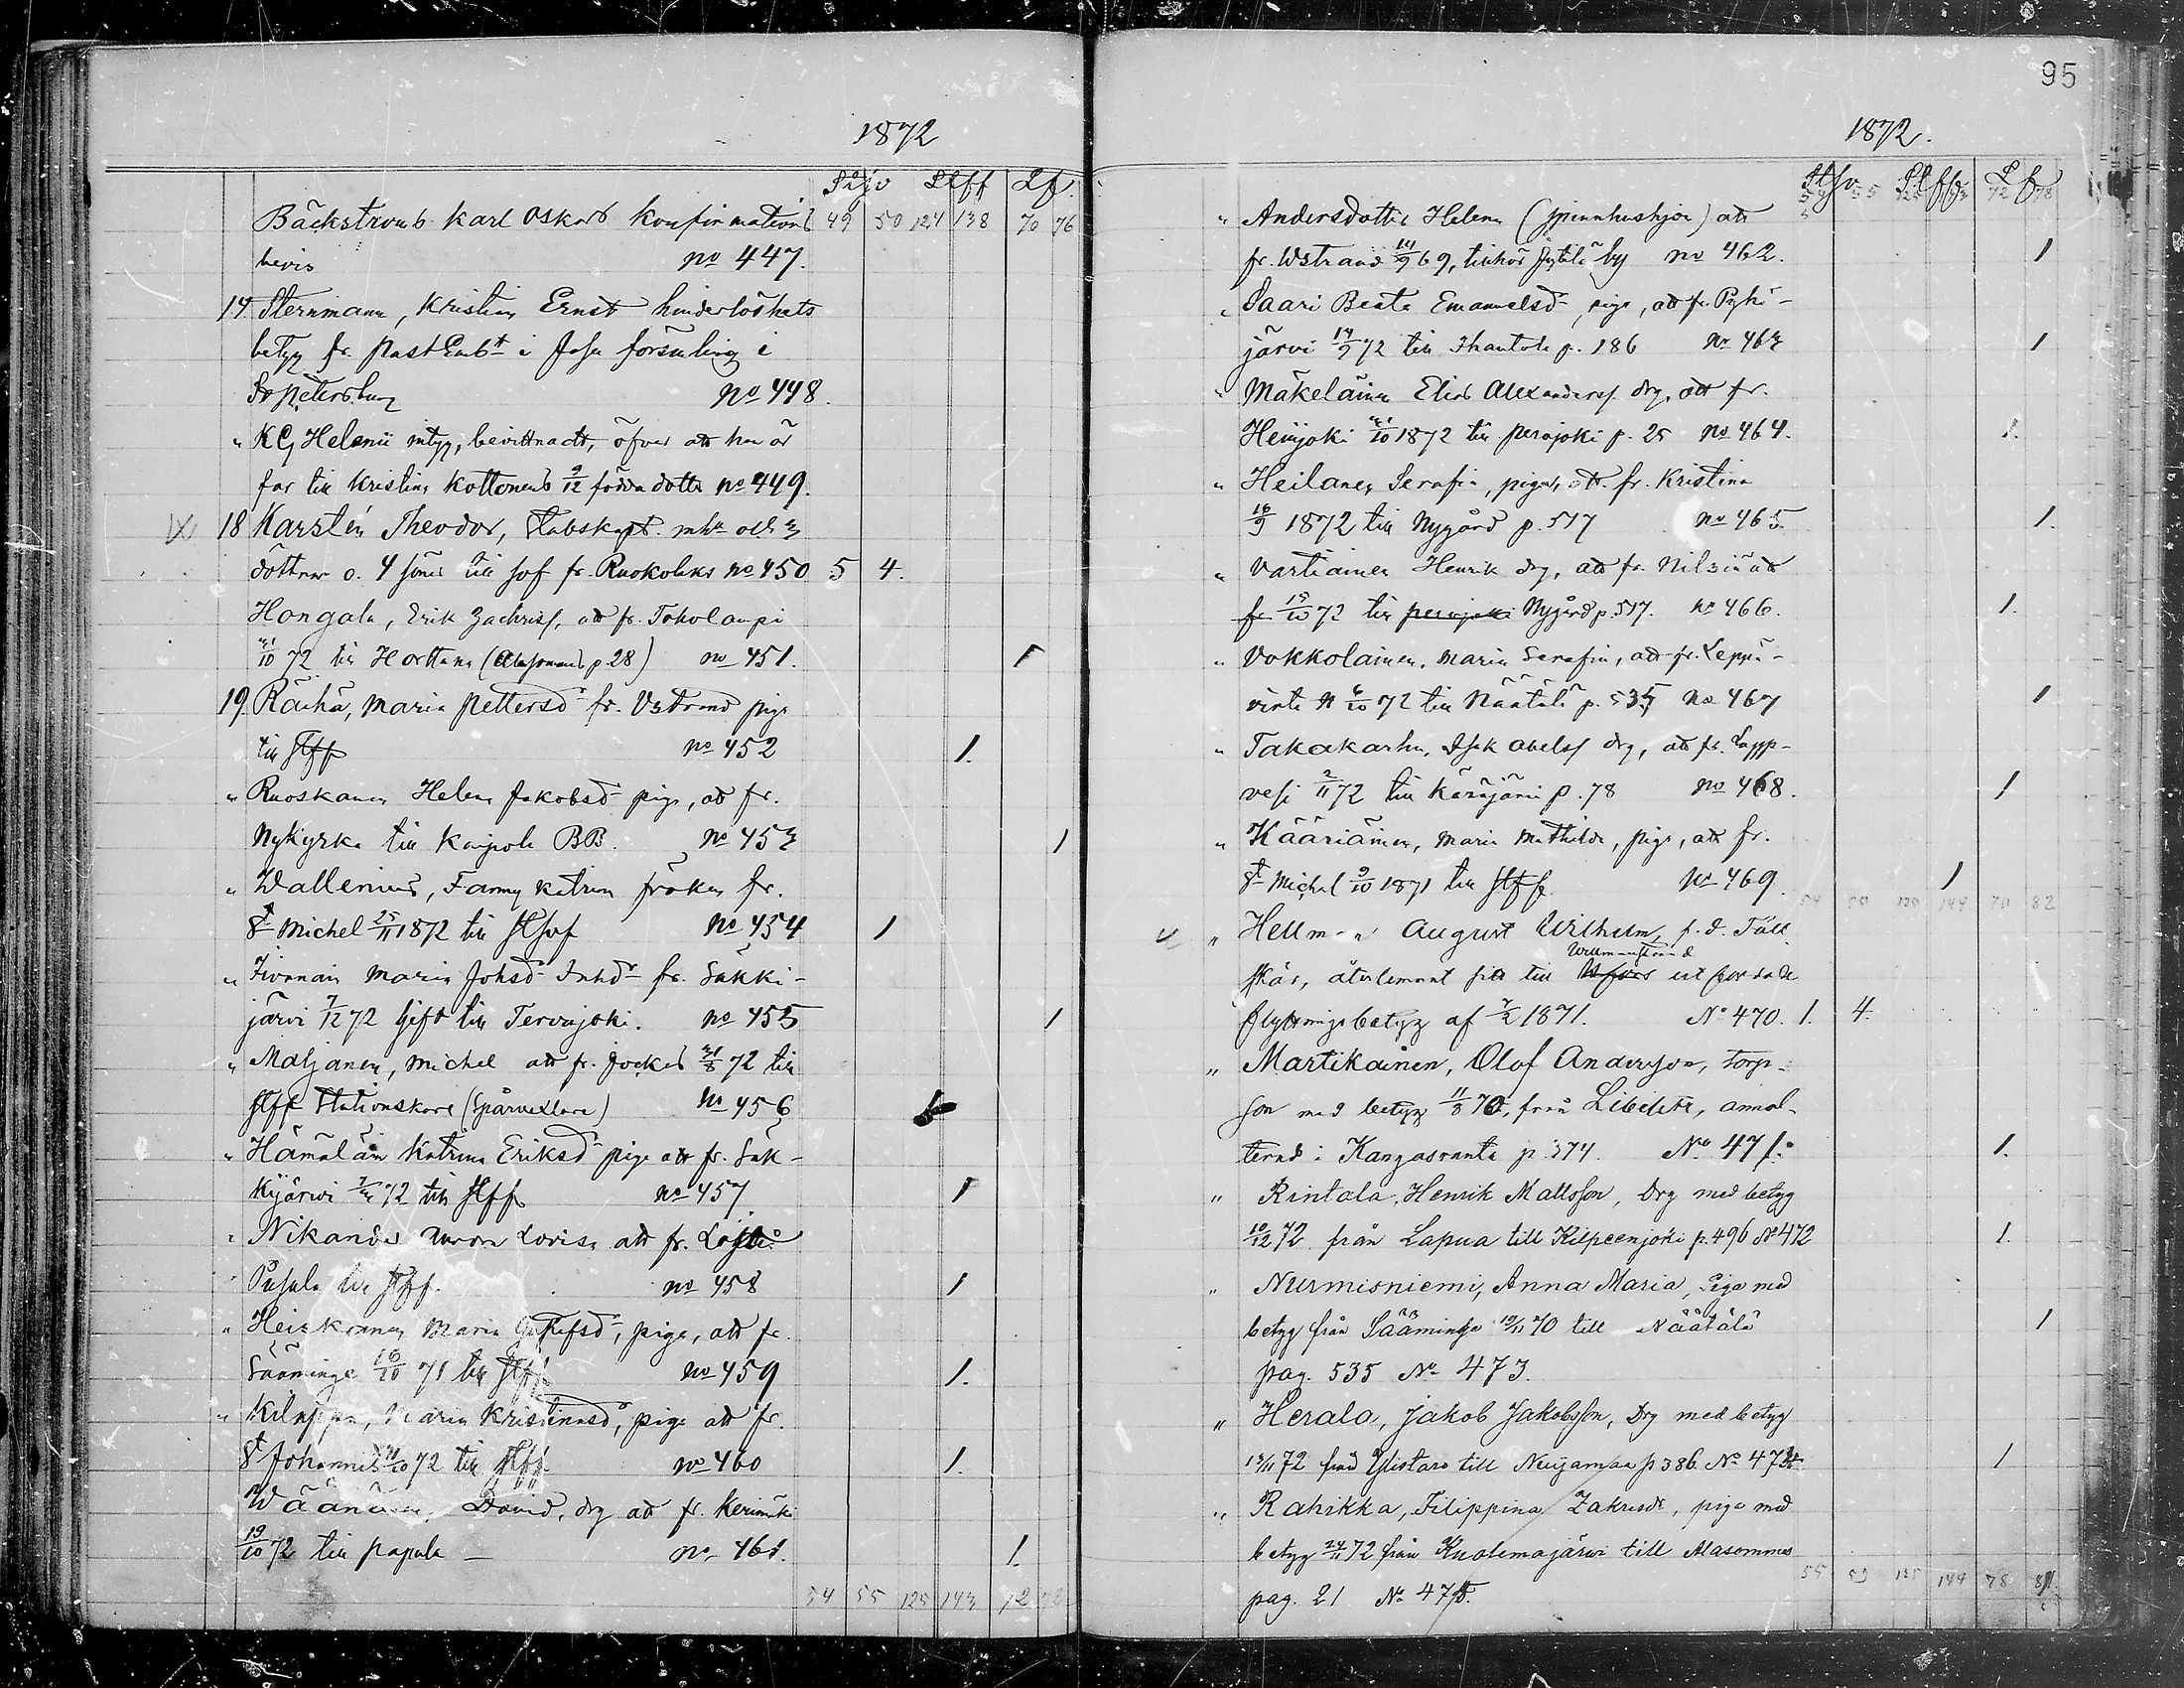 95
1872
Bäckströms Karl Oskars konfirmations 49 50 124 138 70 76
bevis no 447.
14 Sternmann, Kristian Ernst hinderlöshets
betyg fr. i församling i
St Petersburg no 448.
" Helenii intyg, bevittnadt, öfver att han är
far till Kristina Kottonens 9/12 födda dotter no 449.
18 Karstén Theodor, Stabskapt. m h och 3
döttrar o. 4 söner till fr. Ruokolaks no 450 5 4.
Hongala, Erik Zachriss, att fr. Toholampi
/10 72 till Horttana (Alasommes p 28) no 451. 1
19. Räihä, Maria Pettersd fr. Vstrand piga
till Stff no 452 1.
" Ruoskanen Helena Jakobsd piga, att fr.
Nykyrka till Karjola BB. no 453 1
" Wallenius, Fanny Katrina fröken fr.
St Michel 25/11 1872 till no 454 1
" Maria Johsd Inhd fr. Säkki-
järvi 7/12 72 Gift till Tervajoki. no 455 1
" Matjanen, Michel att fr. Jockas 31/8 72 till
Stff Stationskarl (Spårvexlare) no 456
" Hämäläin Katrina Eriksd piga att fr. Säk-
kijärvi 72 till Stff no 457 1
" Nikander Lovisa att fr. Lojo
Pusula till Stff. no 458 1
" Heiskanen Maria Gustafsd, piga, att fr.
Sääminge 16/10 71 till Stff no 459 1.
" Kilappa, Maria Kristinasd, piga att fr.
St Johannis /10 72 till Stff. no 460 1.
Wäänänen, David, drg att fr. Kerimäki
19/10 72 till Papula — no 461. 1.
54 55 125 143 72 78
1872.
" Andersdotter Helena (spinnhushjon) att
fr. Wstrand 14/9 69, tillhör by no 462. 1
" Saari Beata Emanuelsd, piga, att fr. Pyhä-
järvi 14/9 72 till Ihantola p. 186 no 463 1
" Mäkeläinen Elias Alexanders. drg, att fr.
Heinjoki /10 1872 till Perojoki p. 25 no 464. 1.
" Heilanen Serafia, piga, att fr. Kristina
16/9 1872 till Nygård p. 517 no 465. 1.
" Vartiainen Henrik drg, att fr. Nilsiä att
fr 15/10 72 till Perojoki Nygård p. 517. no 466. 1.
" Vokkolainen, Maria Serafia, att fr. Leppä-
virta 6/10 72 till Näätälä p. 535 no 467 1
" Takakarhu, Isak Abelss drg, att fr. Lapp-
vesi 2/11 72 till Kärsjärvi p. 78 no 468. 1
" Kääriäinen, Maria Mathilda, piga, att fr.
St Michel 9/10 1871 till Stff no 469. 1
" Hellman August Wilhelm, f. d. Fält
Willmanstrand
skär, återlemnat sitt till Hfors utfärdade
flyttningsbetyg af 7/2 1871. No 470. 1. 4.
" Martikainen, Olof Andersson, torp-
son med betyg 11/8 70, från Libelits, annot-
terad i Kangasranta p. 374. No 471. 1.
" Rintala, Henrik Mattsson, Drg med betyg
10/12 72 från Lapua till Kilpeenjoki p. 496 No 472 1.
" Nurmisniemi, Anna Maria, Piga med
betyg från Sääminge 19/11 70 till Näätälä 1
pag. 535 No 473.
" Herala, Jakob Jakobsson, Drg med betyg
19/11 72 från Ylistaro till Nuijamaa p 386 No 474 1
" Rahikka, Filippina Zakrisdr, piga med
betyg 24/11 72 från Kuolemajärvi till Alasommes
pag. 21 No 475.